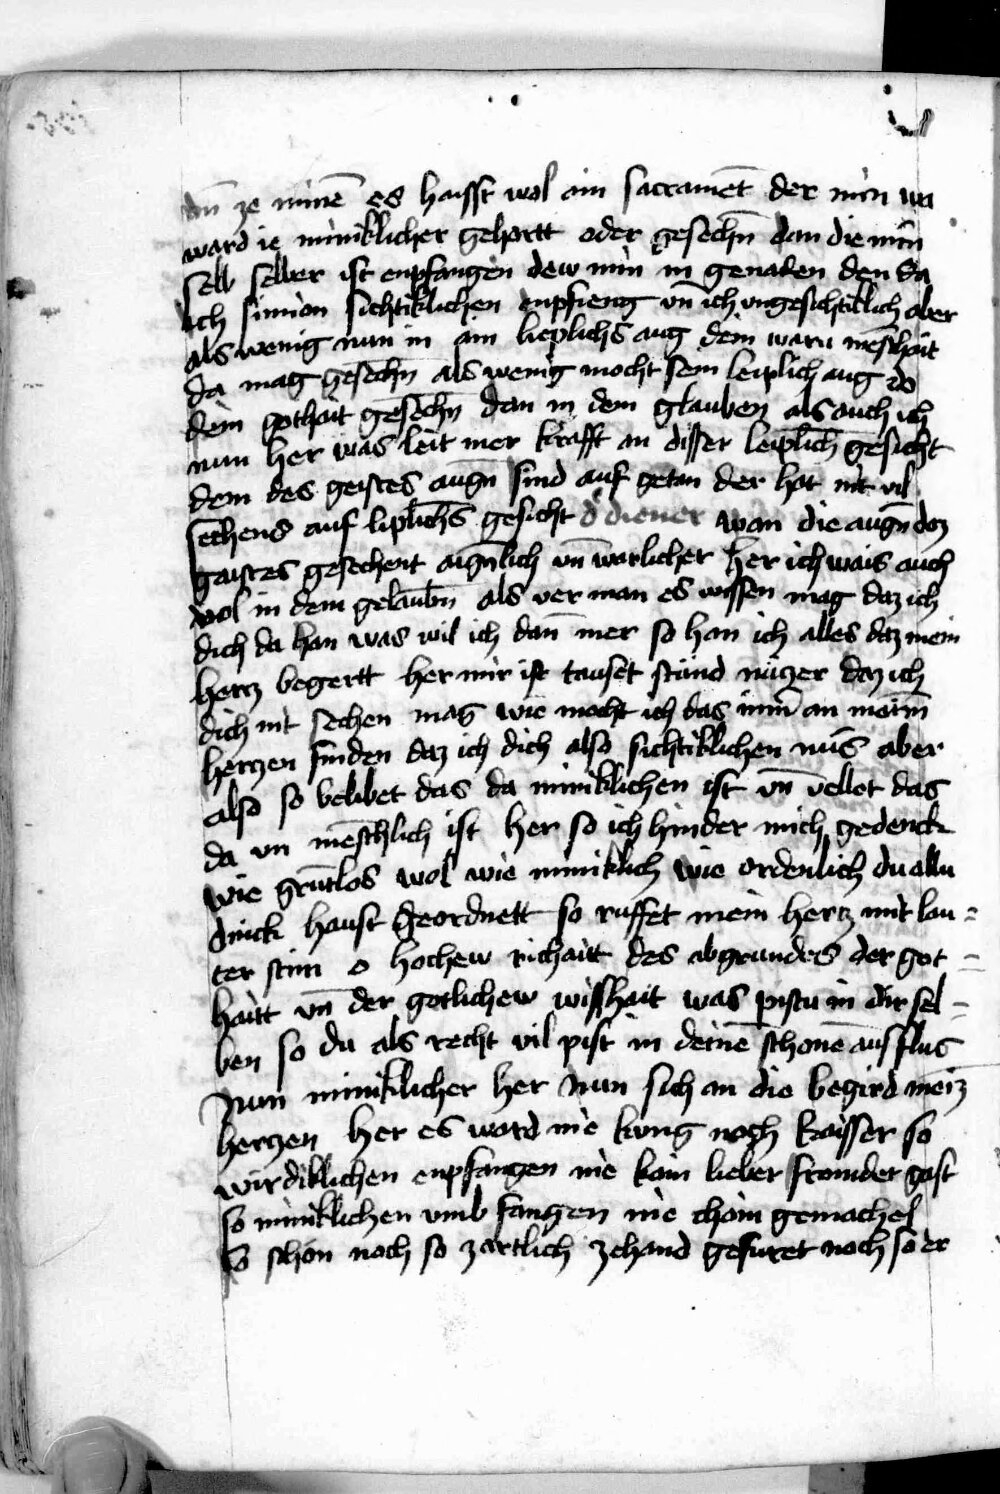 dañ ze minē es haisst wol ain sacramēt der min wa
ward ie miniklicher gehortt oder gesechñ dan die min
selb selber ist enpfangen dew min in genaden den da
ich simion sichtiklichen enpfieng vñ ich vngesichtiklich aber
als wenig nun in am lieplichs aug dein warn mēschait
da mag gesechñ als wenig mocht sein leiplich aug do
dein gothait gesechñ dan in dem glauben als auch ich
nun her was leit mer krafft an disser leiplich gesicht
dem des geistes augñ sind auf getan der hat nit vil
sechens auf liplichs gesicht d diener wan die augñ dez
gaistes gesechent aignlich vñ warlicher her ich wais auch
wol in dem gelaubñ als ver man es wissen mag daz ich
dich da han was wil ich dañ mer so han ich alles daz mein
hertz begertt her mir ist tauset stund nützer daz ich
dich nit sechen mag wie mocht ich das imm̄ an meim̄
hertzen finden daz ich dich also sichtiklichen nüs aber
also so belibet das da miniklichen ist vñ vellet das
da vn mēschlich ist her so ich hinder mich gedenck
wie grūtlos wol wie miniklich wie ordenlich du allu
dinck haust geordnett so ruffet mein hertz mit lau=
ter stim o hochew richaitt des abgrundes der got=
haitt vñ der gotlichew wisshait was pistu in dir sel=
ben so du als recht vil pist in deinē schonē ausflus
Nun miniklicher her nun sich an die begird meiz
hertzen her es ward nie kung noch kaisser so
wirdiklichen enpfangen nie kain lieber fromder gast
so miniklichen vmb fangen nie chain gemachel
so schön noch so zartlich zehand gefuret noch so er